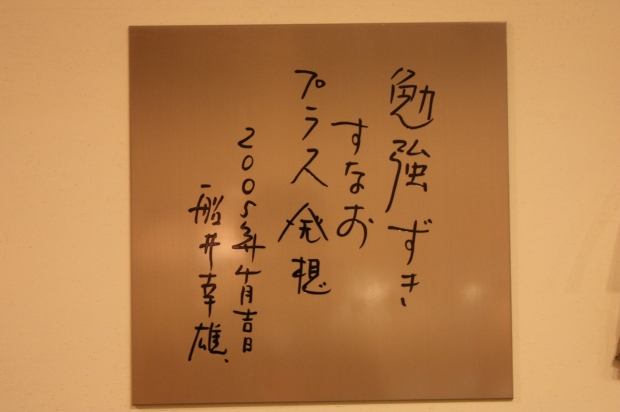 勉強ずき
すなお
プラス発想
2005年4月吉日
船井幸雄